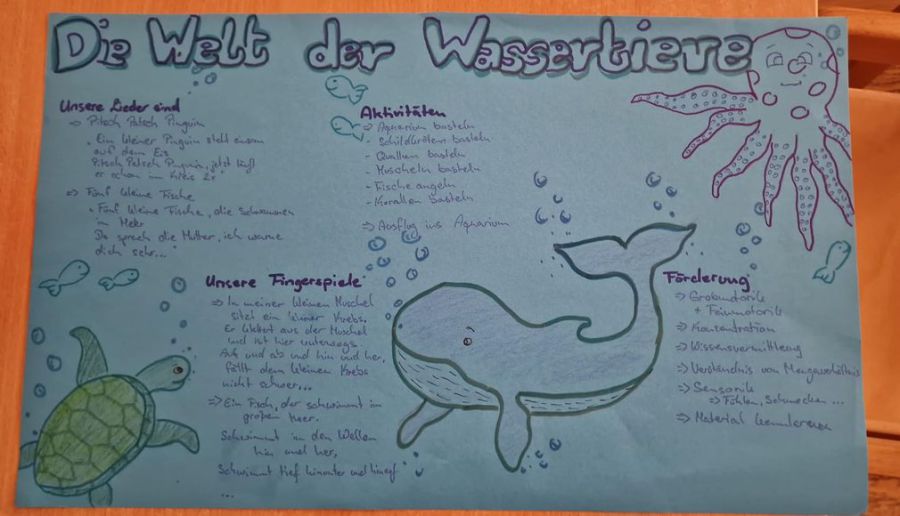 Die Welt der Wassertiere
Unsere Lieder sind
=> Pitsch Patsch Pinguin
"Ein kleiner Pinguin steht einsam
auf dem Eis
Pitsch Patsch Pinguin, jetzt läuft
er schon im Kreis 2x"
=> Fünf kleine Fische
"Fünf kleine Fische, die schwammen
im Meer
Da sprach die Mutter, ich warne
dich sehr..."
Aktivitäten
=> Aquarium basteln
- Schildkröten basteln
- Quallen basteln
- Muscheln basteln
- Fische angeln
- Korallen basteln
=> Ausflug ins Aquarium
Unsere Fingerspiele
=> In meiner kleinen Muschel
sitzt ein kleiner Krebs.
Er klettert aus der Muschel
und ist hier unterwegs.
Auf und ab und hin und her,
fällt dem kleinen Krebs
nicht schwer...
=> Ein Fisch, der schwimmt im
großen Meer.
Schwimmt in den Wellen
hin und her,
Schwimmt tief hinunter und hinauf
...
Förderung
=> Grobmotorik
+ Feinmotorik
=> Konzentration
=> Wissensvermittlung
=> Verständnis von Mengenverhältnis
=> Sensorik
=> Fühlen, Schmecken ...
=> Material kennlernen